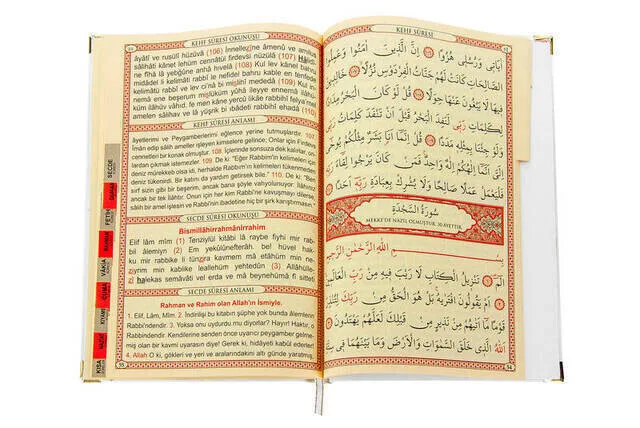 KEHF SÛRESİ OKUNUŞU
âyâtî ve rusulî hüzüvâ (106) İnnellezîne âmenû ve amilus
sâlihâti kânet lehüm cennâtül firdevsi nüzülâ (107) Hâlidî
ne fîhâ lâ yebğûne anhâ hivelâ (108) Kul lev kânel bahru
midâdel li kelimâti rabbî le nefidel bahru kable en tenfede
kelimâtü rabbî ve lev ci'nâ bi mislihî mededâ (109) Kul in
nemâ ene beşerum mislüküm yûhâ ileyye ennemâ ilâhü
küm ilâhüv vâhid, fe men kâne yercû likâe rabbihî felya'mel
amelen sâlihav ve lâ yüşrik bi ibâdeti rabbihî ehadâ (110)
KEHF SÛRESİ ANLAMI
âyetlerimi ve Peygamberlerimi eğlence yerine tutmuşlardır. 107.
İman edip sâlih ameller işleyen kimselere gelince; Onlar için Firdevs
cennetleri bir konak olmuştur. 108. İçlerinde sonsuza dek kalırlar, on-
lardan çıkmak istemezler. 109. De ki: "Eğer Rabbimin kelimeleri için
deniz mürekkep olsa idi, herhalde Rabbimin kelimeleri tükenmeden
deniz tükenirdi. Bir katını da yardım getirsek bile." 110. De ki: "Ben
sırf sizin gibi bir beşerim, ancak bana şöyle vahyolunuyor: İlâhınız
ancak bir tek ilâhtır. Onun için her kim Rabbine kavuşmayı dilerse,
sâlih amel işlesin ve Rabbinin ibadetine hiç bir şirk karıştırmasın."
SECDE SÛRESİ OKUNUŞU
Bismillâhirrahmânirrahim
Elif lâm mîm (1) Tenzîlül kitâbi lâ raybe fîyhi mir rab-
bil âlemiyn (2) Em yekûlûnefterâh, bel hüvel hak-
ku mir rabbike li tünzira kavmem mâ etâhüm min ne-
ziyrim min kablike leallehüm yehtedûn (3) Allâhülle-
zî halekas semâvâti vel erda ve mâ beynehümâ fî sitteti
SECDE SÛRESİ ANLAMI
Rahman ve Rahim olan Allah'ın İsmiyle.
1. Elif, Lâm, Mîm. 2. İndirilişi bu kitabın şüphe yok bunda âlemlerin
Rabbi'ndendir. 3. Yoksa onu uydurdu mu diyorlar? Hayır! Haktır, o
Rabbindendir. Kendilerine senden önce uyarıcı peygamber gelme-
miş olan bir kavmi uyarasın diye! Gerek ki, hidâyeti kabûl ederler!
4. Allah O ki, gökleri ve yeri ve aralarındakini altı günde yaratmış,
55
SECDE
FETİH
RAHMAN
VÂKIA
CUMA
KIYAME
KISA
KEHF SÛRESİ
اٰيَاتٖي وَرُسُلٖي هُزُوًا ﴿١٠٦﴾ اِنَّ الَّذٖينَ اٰمَنُوا وَعَمِلُوا
الصَّالِحَاتِ كَانَتْ لَهُمْ جَنَّاتُ الْفِرْدَوْسِ نُزُلًا ﴿١٠٧﴾ خَالِدٖينَ
فٖيهَا لَا يَبْغُونَ عَنْهَا حِوَلًا ﴿١٠٨﴾ قُلْ لَوْ كَانَ الْبَحْرُ مِدَادًا
لِكَلِمَاتِ رَبّٖي لَنَفِدَ الْبَحْرُ قَبْلَ اَنْ تَنْفَدَ كَلِمَاتُ رَبّٖي
وَلَوْ جِئْنَا بِمِثْلِهٖ مَدَدًا ﴿١٠٩﴾ قُلْ اِنَّمَا اَنَا بَشَرٌ مِثْلُكُمْ يُوحٰى
اِلَيَّ اَنَّمَا اِلٰهُكُمْ اِلٰهٌ وَاحِدٌ فَمَنْ كَانَ يَرْجُوا لِقَاءَ رَبِّهٖ
فَلْيَعْمَلْ عَمَلًا صَالِحًا وَلَا يُشْرِكْ بِعِبَادَةِ رَبِّهٖ اَحَدًا ﴿١١٠﴾
سُورَةُ السَّجْدَةِ
MEKKE'DE NAZİL OLMUŞTUR. 30 AYETTİR.
بِسْمِ اللّٰهِ الرَّحْمٰنِ الرَّحٖيمِ
الٓمٓ ﴿١﴾ تَنْزٖيلُ الْكِتَابِ لَا رَيْبَ فٖيهِ مِنْ رَبِّ الْعَالَمٖينَ
﴿٢﴾ اَمْ يَقُولُونَ افْتَرٰيهُ بَلْ هُوَ الْحَقُّ مِنْ رَبِّكَ لِتُنْذِرَ
قَوْمًا مَا اَتٰيهُمْ مِنْ نَذٖيرٍ مِنْ قَبْلِكَ لَعَلَّهُمْ يَهْتَدُونَ ﴿٣﴾
اَللّٰهُ الَّذٖي خَلَقَ السَّمٰوَاتِ وَالْاَرْضَ وَمَا بَيْنَهُمَا فٖي سِتَّةِ
54